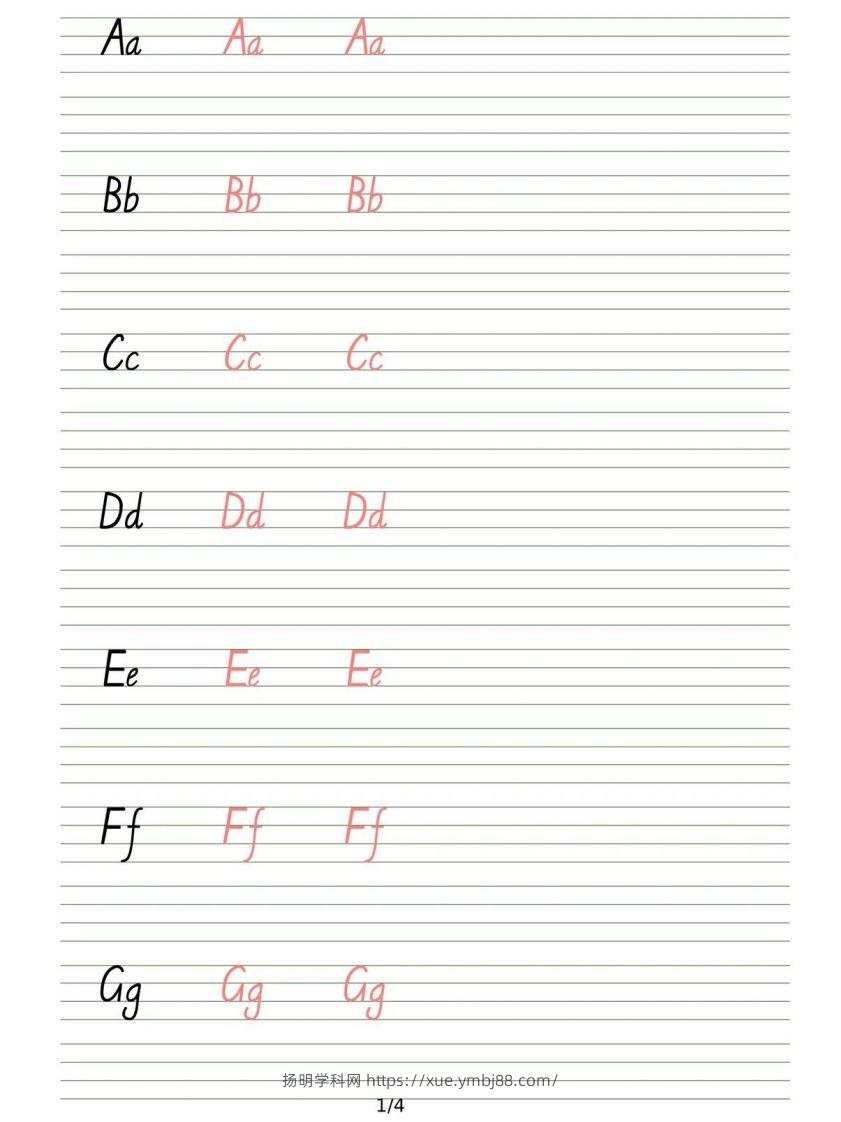 Aa Aa Aa
Bb Bb Bb
Cc Cc Cc
Dd Dd Dd
Ee Ee Ee
Ff Ff Ff
Gg Gg Gg
扬明学科网 https://xue.ymbj88.com/
1/4